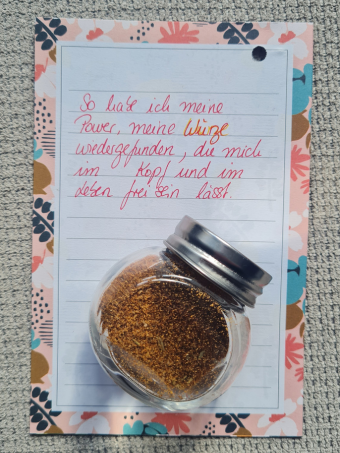 So habe ich meine
Power, meine Würze
wiedergefunden, die mich
im Kopf und im
Leben frei sein lässt.